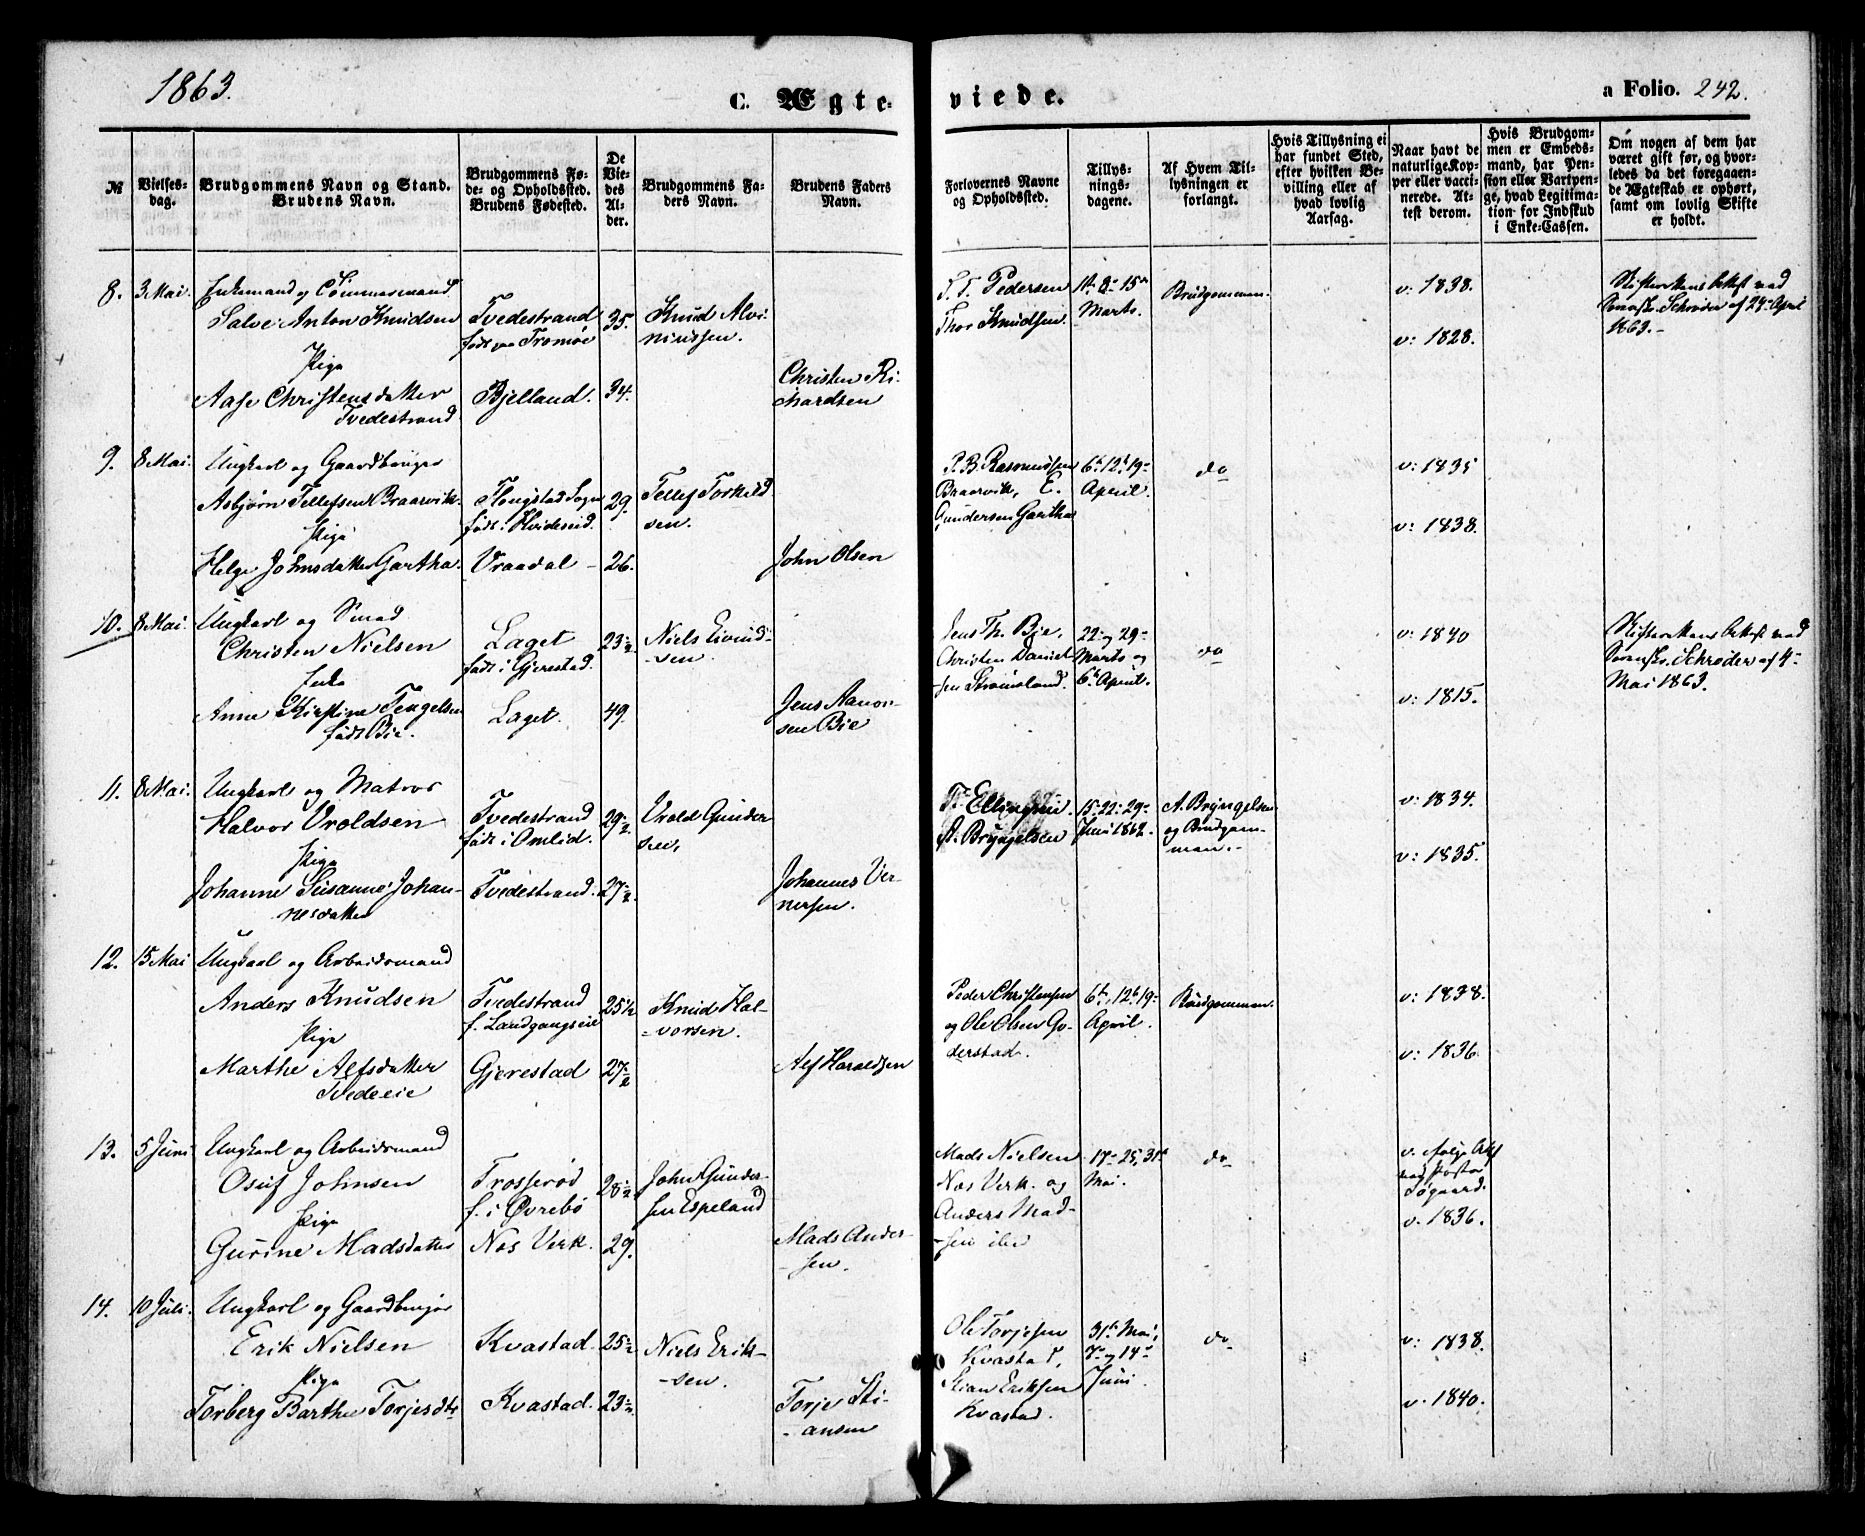 1863.
C. Ægte-
viede.
a Folio. 242.
№
Vielses-
dag.
Brudgommens Navn og Stand.
Brudens Navn.
Brudgommens Fø-
de- og Opholdssted.
Brudens Fødested.
De
Vie-
des
Al-
der.
Brudgommens Fa-
ders Navn.
Brudens Faders
Navn.
Forlovernes Navne
og Opholdssted.
Tillys-
nings-
dagene.
Af Hvem Til-
lysningen er
forlangt.
Hvis Tillysning ei
har fundet Sted,
efter hvilken Be-
villing eller af
hvad lovlig
Aarsag.
Naar havt de
naturlige Kop-
per eller vacci-
nerede. At-
test derom.
Hvis Brudgom-
men er Embeds-
mand, har Pen-
sion eller Vartpen-
ge, hvad Legitima-
tion for Indskud
i Enke-Cassen.
Om nogen af dem har
været gift før, og hvor-
ledes da det foregaaen-
de Ægteskab er ophørt,
samt om lovlig Skifte
er holdt.
8. 3 Mai. Enkemand og Tømmermand
Salve Anton Knudsen
Pige
Aase Christensdatter
Tvedestrand
Tvedestrand
født paa Tromøe
Bjelland.
35.
34.
Knud Alvi-
niussen.
Christen Ri-
chardsen
T. T. Pedersen
Thor Knudsen
1te 8de 15de
Marts.
Brudgommen.
v: 1838.
v: 1828.
Skifterettens bekft med
Schrøder af 24de April
1863.
9. 8 Mai. Ungkarl og Gaardbruger
Asbjørn Tellefsen Braarvik
Pige
Helge Johnsdatter Gartha.
Sogn
født i Hvideseid.
Vraadal
29.
26.
Tellef Torkild
sen.
John Olsen
P. B. Rasmussen
Braarvik, E.
Gundersen Gartha
6te 12te 19de
April.
do
v: 1835
v: 1838.
10. 8 Mai. Ungkarl og Smed
Christen Nielsen
Enke
Anne Kirstine Tengelsen
født Bie.
Laget
født i Gjerestad.
Laget.
23½
49.
Niels Eivind-
sen.
Jens Aanon-
sen Bie
Jens Th. Bie,
Christen Daniel-
sen Strømsland.
22de og 29de
Marts og
6te April.
do
v: 1840
v: 1815.
Skifterettens bekft med
Schrøder af 4de
Mai 1863.
11. 8 Mai. Ungkarl og Matros
Halvor Vroldsen
Pige
Johanne Susanne Johan-
nesdatter
Tvedestrand
født i Omlid.
Tvedestrand.
29½
27½
Vrold Gunder
sen,
Johannes Ver-
nersen.
A. Bryngelsen
15de 22de 29de
Juni 1862.
A. Bryngelsen
og Brudgom-
men.
v: 1834.
v: 1835.
12. 15 Mai Ungkarl og Arbeidsmand
Anders Knudsen
Pige
Marthe Alfsdatter
Tvedeeie
Tvedestrand
f. Landgangseie
Gjerestad
25½
27½
Knud Hal-
vorsen.
Alf Haraldsen
Peder Christensen
og Ole Olsen Go-
derstad.
6te, 12te 19de
April.
Brudgommen.
v: 1838.
v: 1836.
13. 5 Juni Ungkarl og Arbeidsmand
Osuf Johnsen
Pige
Gurine Madsdatter
Trosserød
f. i Øvrebø
Nos Verk.
28½
29.
John Gunder-
sen Espeland
Mads Ander-
sen.
Mads Nielsen
Nos Verk. og
Anders Mad-
sen
17de 25, 31te
Mai.
do
v. ifølge Att
v. 1836.
14. 10 Juli. Ungkarl og Gaardbruger
Erik Nielsen
Pige
Torberg Barthe Torjesdtr
Kvastad.
Kvastad.
25½
23½
Niels Erik-
sen.
Torje Sti-
ansen
Ole Torjesen
Kvastad,
Stian Eriksen
Kvastad.
31te Mai,
7de og 14de
Juni
do
v: 1838.
v. 1840.